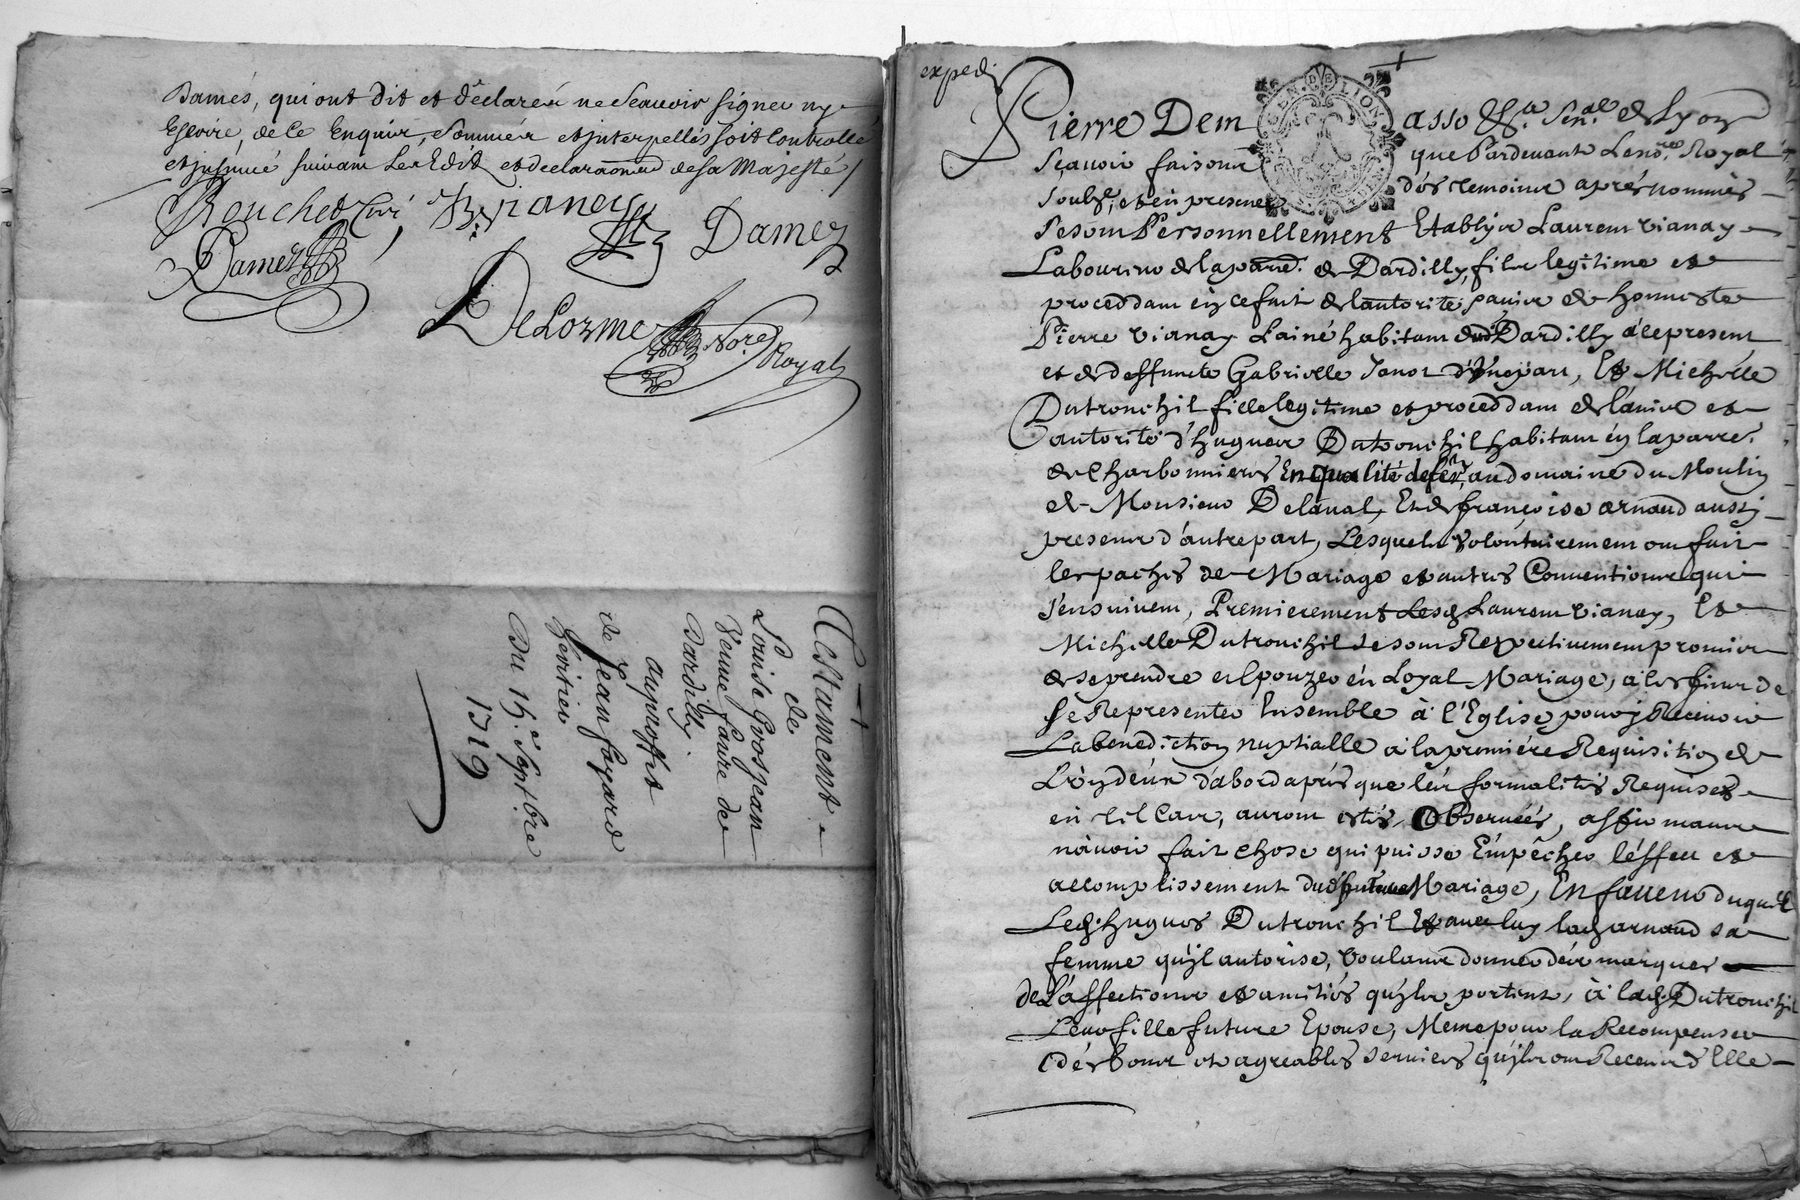 Damés, qui ont dit et declaréz ne Scauoir signer ny
Escrire, de ce Enquis, Sommés et interpellés soit Controllé
et insinué suivant les Edits et declarãons de sa Majesté /
Bouchet Curé
B. Vianey
Damez
Damez
DeLorme Nore.
Royal
Testament
de
Louise Grosjean
Veuve faure de
Dardilly.
au proffit
de Jean fayard
héritier
Du 15.e Septbre
1719
exped.
GEN. DE LION
Pierre Dem asso Sen.al de Lyon
Scauoir faisons que Pardeuant Le no.re Royal
soubz.é, et en presence des temoins aprés nommés
se sont Personnellement Etablys Laurent Vianay
Laboureur de la parr.e de Dardilly, fils legitime et
proceddant en ce fait de l'autorité, l'auis de honneste
Pierre Vianay L'ainé habitant dud. Dardilly à ce present
et de deffuncte Gabrielle d'Unepart, Et Michelle
Dutronchil fille legitime et proceddant de l'auis et
autorité d'hugues Dutronchil habitant en la parr.e
de Charbonnieres En qualité de au domaine du Moulin
de Monsieur Delaual, Et de françoise arnaud aussy
presens d'autre part, Lesquels volontairement ont fait
les pachés de Mariage et autres Conuentions qui
s'ensuiuent, Premierement Lesd. Laurent Vianay, Et
Michelle Dutronchil se sont Respectiuement promis
de se prendre et Epouzer en Loyal Mariage, à les fins de
se Representer Ensemble à l'Eglise pour y Receuoir
La benediction nuptialle à la première Requisition de
L'un d'eux d'abord aprés que les formalités Requises
en tel Cas, auront estés Obseruées, affirmant
n'auoir fait chose qui puisse Empêcher l'éffet et
accomplissement dud. futur Mariage, En faueur duquel
Led. hugues Dutronchil Et auec luy lad. arnaud sa
femme qu'il autorise, voulant donner des marques
de L'affections et amitiés qu'ils portent, à lad. Dutronchil
Leur fille future Epouse, Meme pour la Recompenser
des bons et agreables seruices qu'ils ont Receus d'Elle